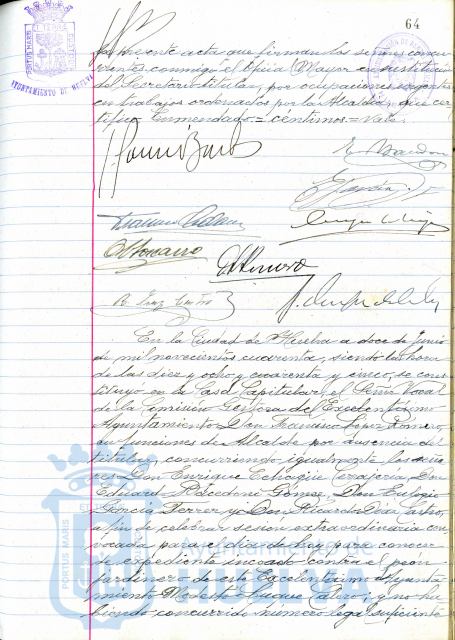 64
AYUNTAMIENTO DE HUELVA
la presente acta que firman los señores concu-
rrentes conmigo el Oficial Mayor en sustitución
del Secretario titular, por ocupaciones urgentes
en trabajos ordenados por la Alcaldía, que cer-
tifico. Enmendado = centimos = Vale.
En la Ciudad de Huelva a doce de Junio
de mil novecientos cuarenta, siendo las horas
de las diez y ocho y cuarenta y cinco, se cons-
tituyó en la Casa Capitular, el Señor Vocal
de la Comisión Gestora del Excelentísimo
Ayuntamiento Don Francisco López Romero,
en funciones de Alcalde por ausencia del
titular, concurriendo igualmente los seño-
res Don Enrique Echagüe Don
Eduardo Gómez, Don Eulogio
García Ferrer y Don Ricardo Díaz Castro,
a fin de celebrar sesión extraordinaria con-
vocada para el día de hoy para conocer
de expediente incoado contra el peón
jardinero de este Excelentísimo Ayunta-
miento Modesto Duque y no ha-
biendo concurrido número legal suficiente
PORTUS MARIS
Ayuntamiento de
HUELVA